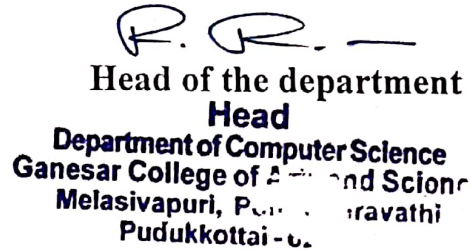 R. R.
Head of the department
Head
Department of Computer Science
Ganesar College of and
Melasivapuri,
Pudukkottai -